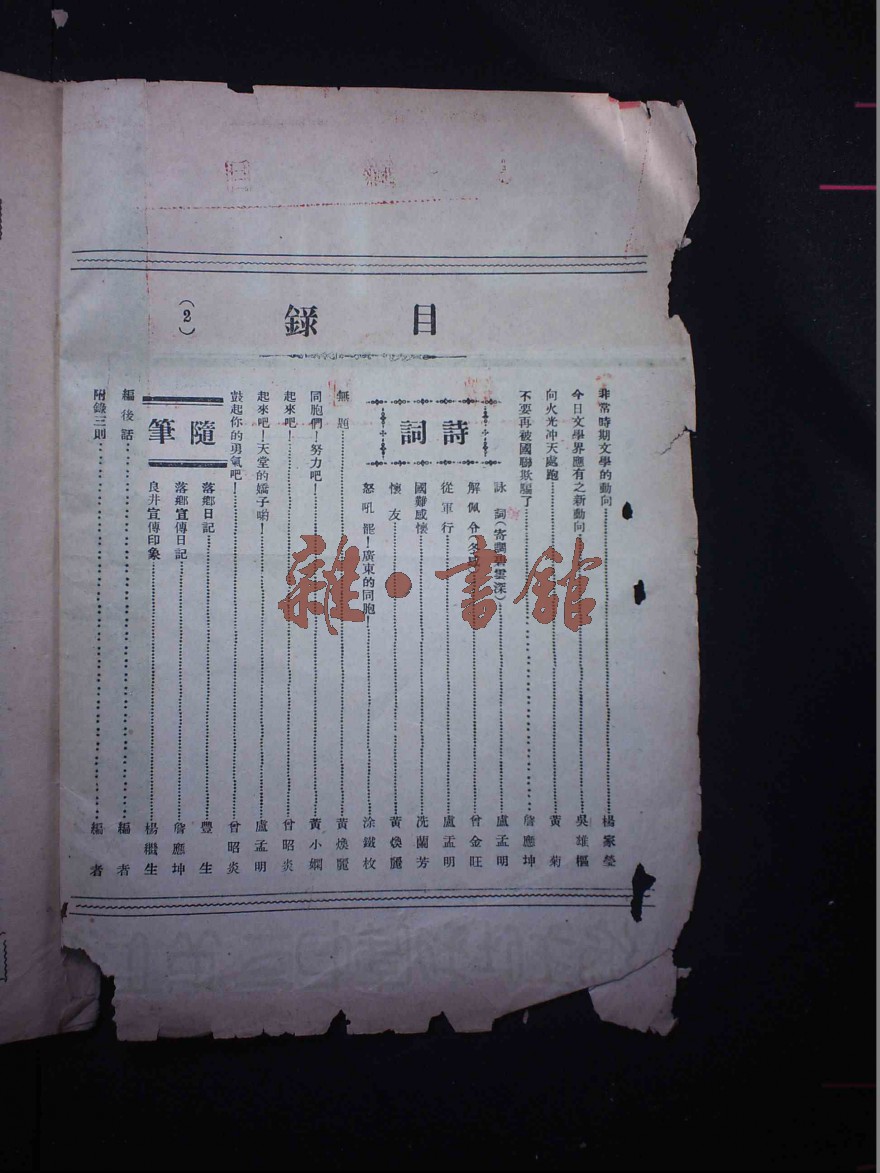 目錄
(2)
非常時期文學的動向 楊家瑩
今日文學界應有之新動向 吳雄樞
向火光冲天處跑 黃菊
不要再被國聯欺騙了 詹應坤
詩詞
詠詞(寄調 雲深) 盧孟明
解佩令(冬 曾金旺
從軍行 盧孟明
國難感懷 冼蘭芳
懷友 黃煥麗
怒吼罷!廣東的同胞! 涂鐵枚
無題 黃煥麗
同胞們!努力吧 黃小嫻
起來吧! 曾昭炎
起來吧!天堂的嬌子喲! 盧孟明
鼓起你的勇氣吧! 曾昭炎
隨筆
落鄉日記 豐生
落鄉宣傳日記 詹應坤
良井宣傳印象 楊繼生
編後話 編者
附錄三則 編者
雜·書館